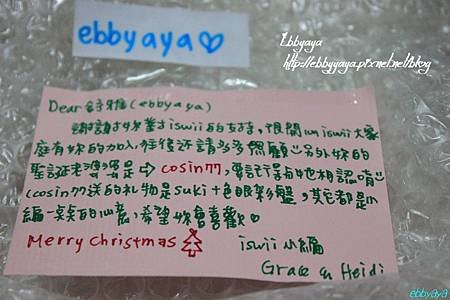 ebbyaya♡
Ebbyaya
http://ebbyyaya.pixnet.net/blog
Dear 舒雅(ebbyaya)
謝謝妳對iswii的支持,很開心iswii大家
庭有妳的加入,往後還請多多照顧☺另外妳的
聖誕老婆婆是⇨ cosin77,要記得去她相認唷☺
(cosin77送的礼物是suki+色眼影盤,其它都是小
編一點的心意,希望妳會喜歡♡
Merry Christmas
iswii小編
Grace & Heidi
ebbyaya